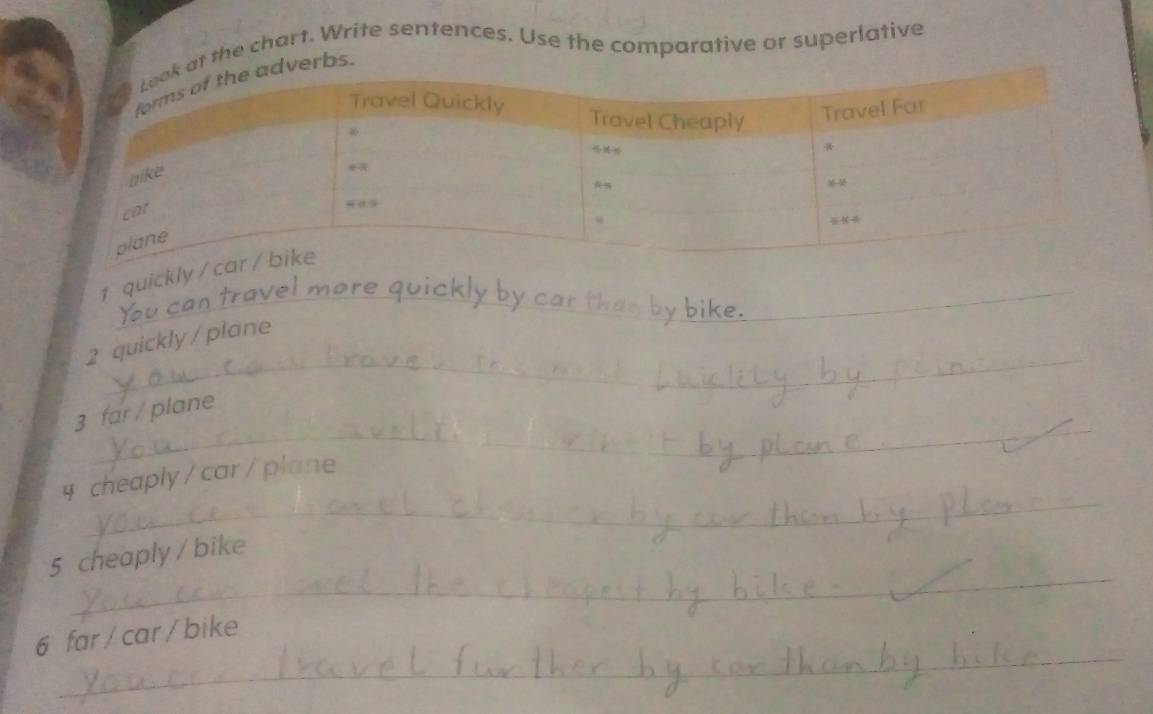 Look at the chart. Write sentences. Use the comparative or superlative
forms of the adverbs.
Travel Quickly Travel Cheaply Travel Far
bike * *** *
car ** ** **
plane *** * ***
1 quickly / car / bike
You can travel more quickly by car than by bike.
2 quickly / plane
you can travel the most by
3 far / plane
You can travel by plane.
4 cheaply / car / plane
you can travel cheaper by car than by plane
5 cheaply / bike
You can travel the cheapest by bike. ✓
6 far / car / bike
You travel further by car than by bike